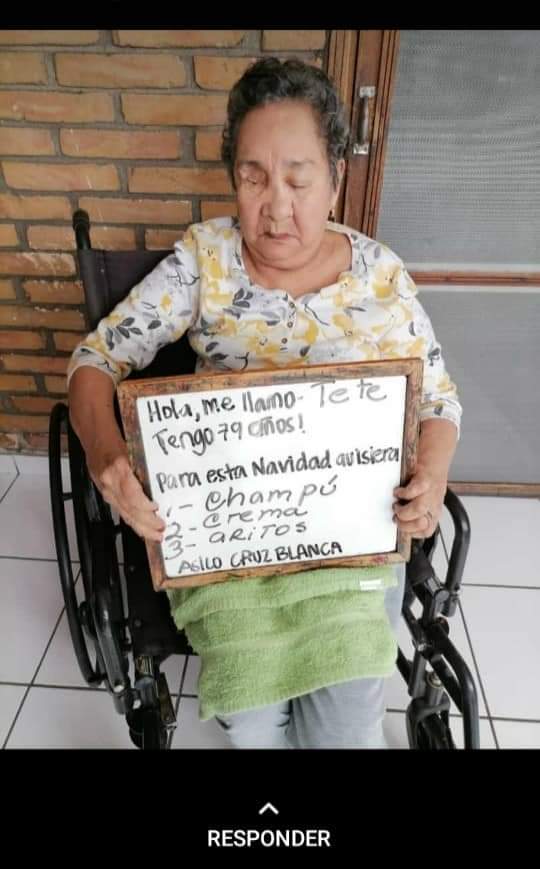 Hola, me llamo- Tete
Tengo 79 años!
Para esta Navidad quisiera
1- champú
2- crema
3- aRiTOS
ASILO CRUZ BLANCA
RESPONDER